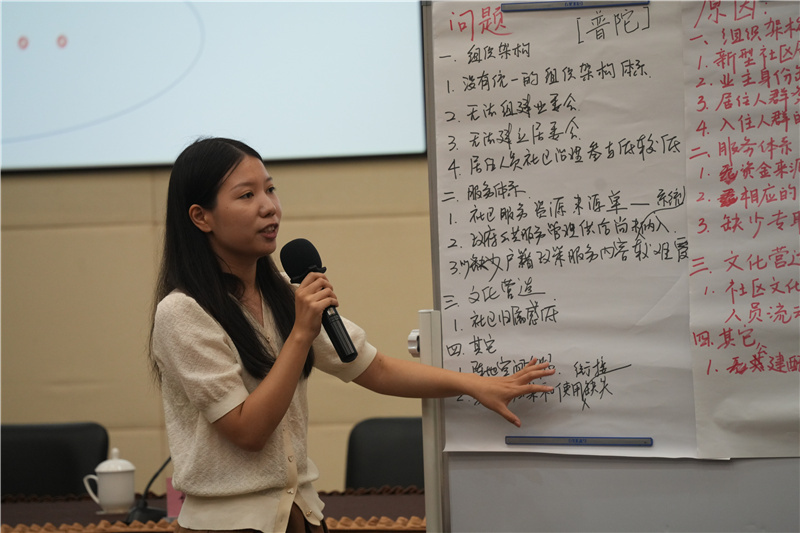 问题 [普陀]
一. 组织架构
1. 没有统一的组织架构体系.
2. 无法组建业委会
3. 无法建立居委会
4. 居住人员社区治理参与度较低
二. 服务体系
1. 社区服务资源来源单一 系统
2. 政府公共服务管理供给尚未纳入.
3. 缺少户籍政策服务内容较难覆
三. 文化营造
1. 社区归属感低
四. 其它
1. 衔接
2. 和使用缺失
原因:
一、组织架构
1. 新型社区
2. 业主身份
3. 居住人群
4. 入住人群的
二. 服务体系
1. 资金来源
2. 相应的
3. 缺少专
三. 文化营造
1. 社区文化
人员流动
四. 其它
1. 建配